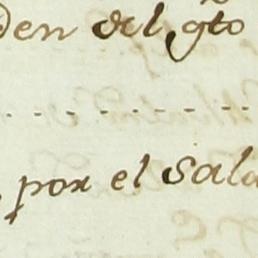 den del gto
por el Sala